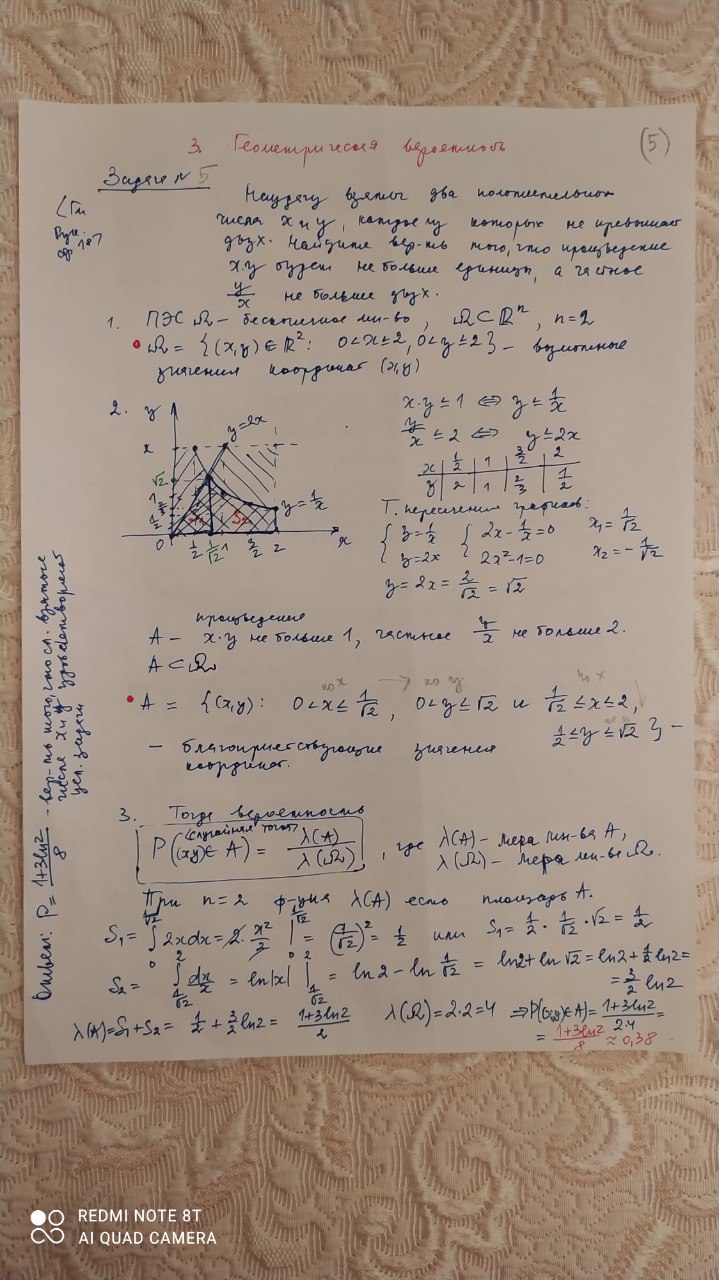 3. Геометрическая вероятность
(5)
Задача № 5
Наудачу взяты два положительных
числа x и y, каждое из которых не превышает
двух. Найдите вер-ть того, что произведение
x·y будет не больше единицы, а частное
y/x не больше двух.
1. ПЭС Ω – бесконечное мн-во, Ω ⊂ ℝⁿ, n = 2
Ω = {(x,y) ∈ ℝ²: 0 < x ≤ 2, 0 < y ≤ 2} – возможные
значения координат (x,y)
2.
y
y=2x
√2
1
1/2
0
1/2
1/√2
1
3/2
2
x
y=1/x
S₂
x·y ≤ 1 ⇔ y ≤ 1/x
y/x ≤ 2 ⇔ y ≤ 2x
x | 1/2 | 1 | 3/2 | 2
y | 2 | 1 | 2/3 | 1/2
Т. пересечения графиков:
{ y = 1/x { 2x - 1/x = 0 x₁ = 1/√2
{ y = 2x { 2x² - 1 = 0 x₂ = - 1/√2
y = 2x = 2/√2 = √2
произведение
A – x·y не больше 1, частное y/x не больше 2.
A ⊂ Ω
по x → по y по x
A = {(x,y): 0 < x ≤ 1/√2, 0 < y ≤ √2 и 1/√2 ≤ x ≤ 2,
1/2 ≤ y ≤ √2 } –
– благоприятствующие значения
координат.
3. Тогда вероятность
(случайная точка)
P((x,y) ∈ A) = λ(A)/λ(Ω), где λ(A) – мера мн-ва A,
λ(Ω) – мера мн-ва Ω.
При n = 2 ф-ция λ(A) есть площадь A.
S₁ = ∫₀^{1/√2} 2xdx = 2· x²/2 |₀^{1/√2} = (1/√2)² = 1/2 или S₁ = 1/2 · 1/√2 · √2 = 1/2
S₂ = ∫_{1/√2}^2 dx/x = ln|x| |_{1/√2}^2 = ln2 - ln 1/√2 = ln2 + ln√2 = ln2 + 1/2 ln2 =
= 3/2 ln2
λ(A) = S₁ + S₂ = 1/2 + 3/2 ln2 = (1+3ln2)/2 λ(Ω) = 2·2 = 4 ⇒ P((x,y) ∈ A) = (1+3ln2)/2·4 =
= (1+3ln2)/8 ≈ 0,38
Ответ: P = (1+3ln2)/8 – вер-ть того, что сл. взятые
числа x и y удовлетворяют
усл. задачи